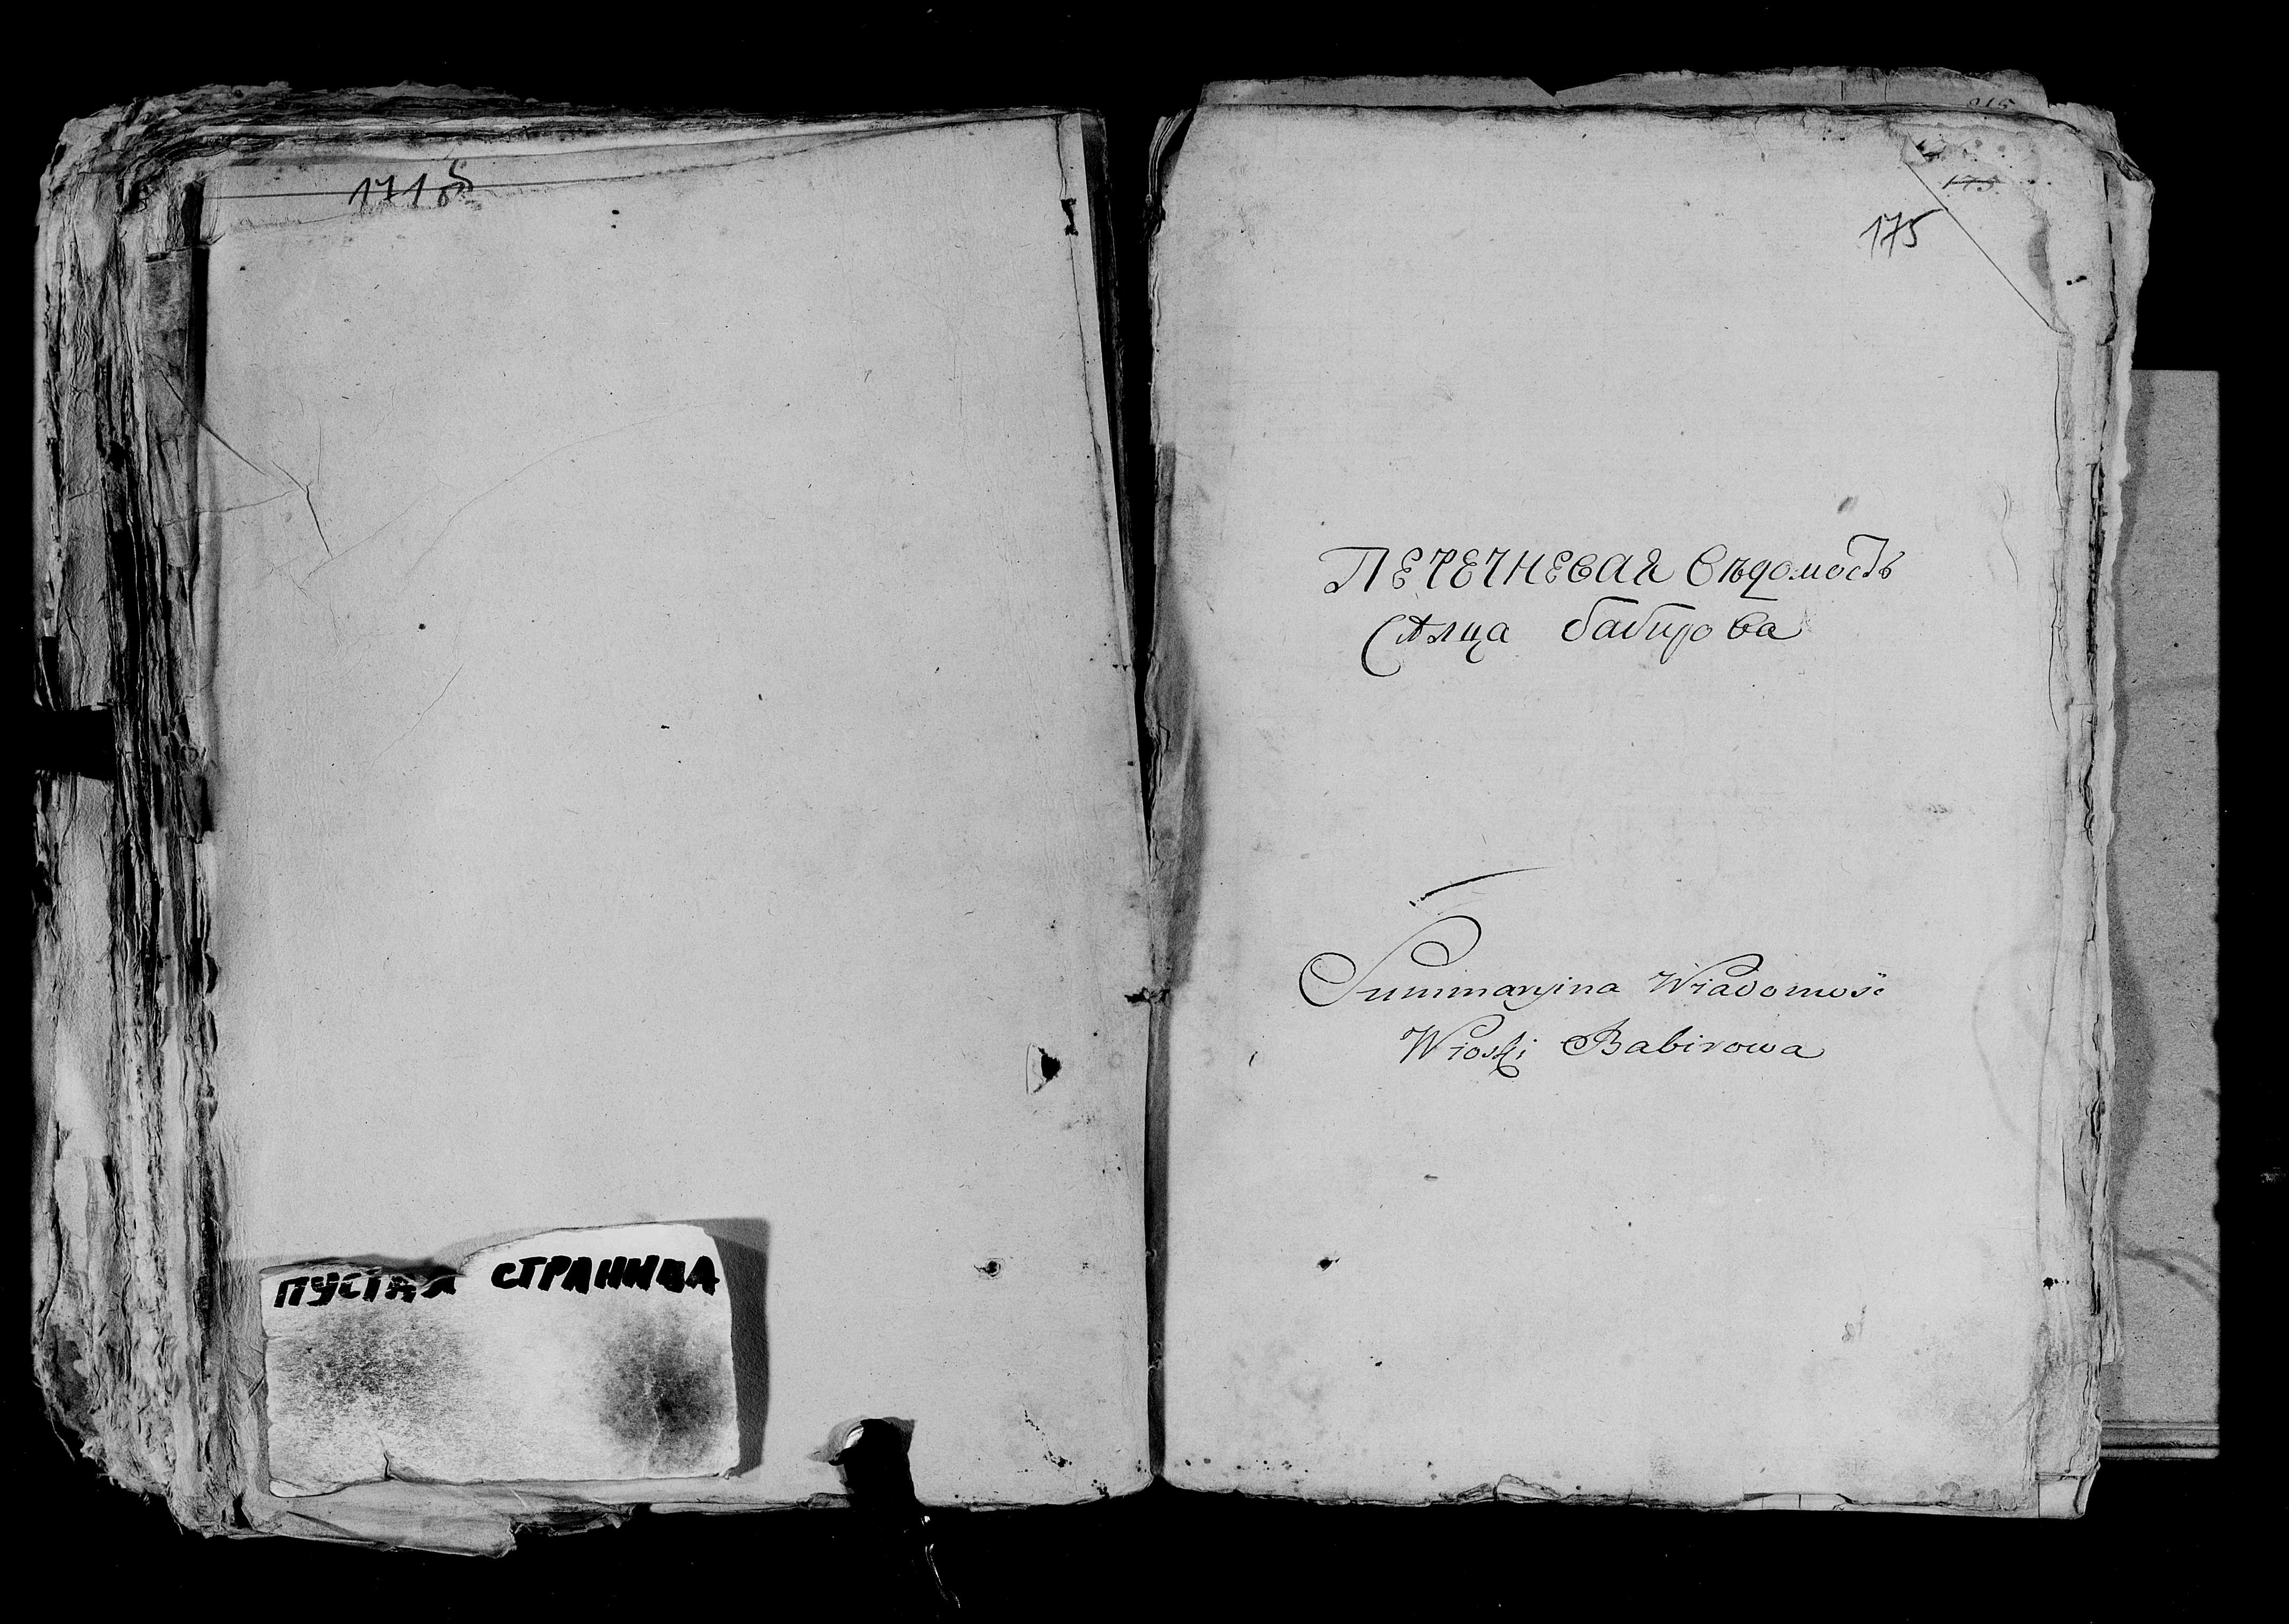 ПУСТАЯ СТРАНИЦА
175
175
ПЕРЕЧНЕВАЯ Вѣдомость
Сѣлца бабирова
Summaryina Wiadomość
Wioski Babirowa